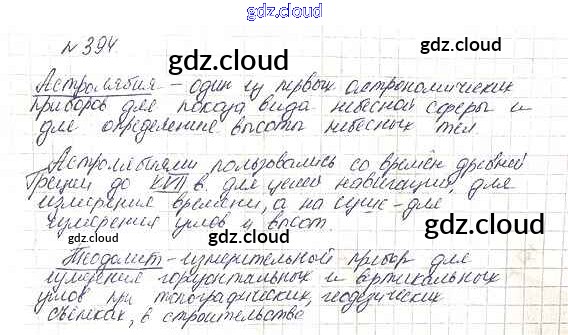 gdz.cloud
№ 394
gdz.cloud gdz.cloud
Астролябия – один из первых астрономических
приборов для показа вида небесной сферы и
для определение высоты небесных тел.
gdz.cloud gdz.cloud
Астролябиями пользовались со времён древней
Греции до XVII в. для целей навигации, для
измерения времени, а на суше – для
измерения углов и высот.
gdz.cloud gdz.cloud
Теодолит – измерительной прибор для
измерения горизонтальных и вертикальных
углов при топографических, геодезических
съёмках, в строительстве
gdz.cloud gdz.cloud